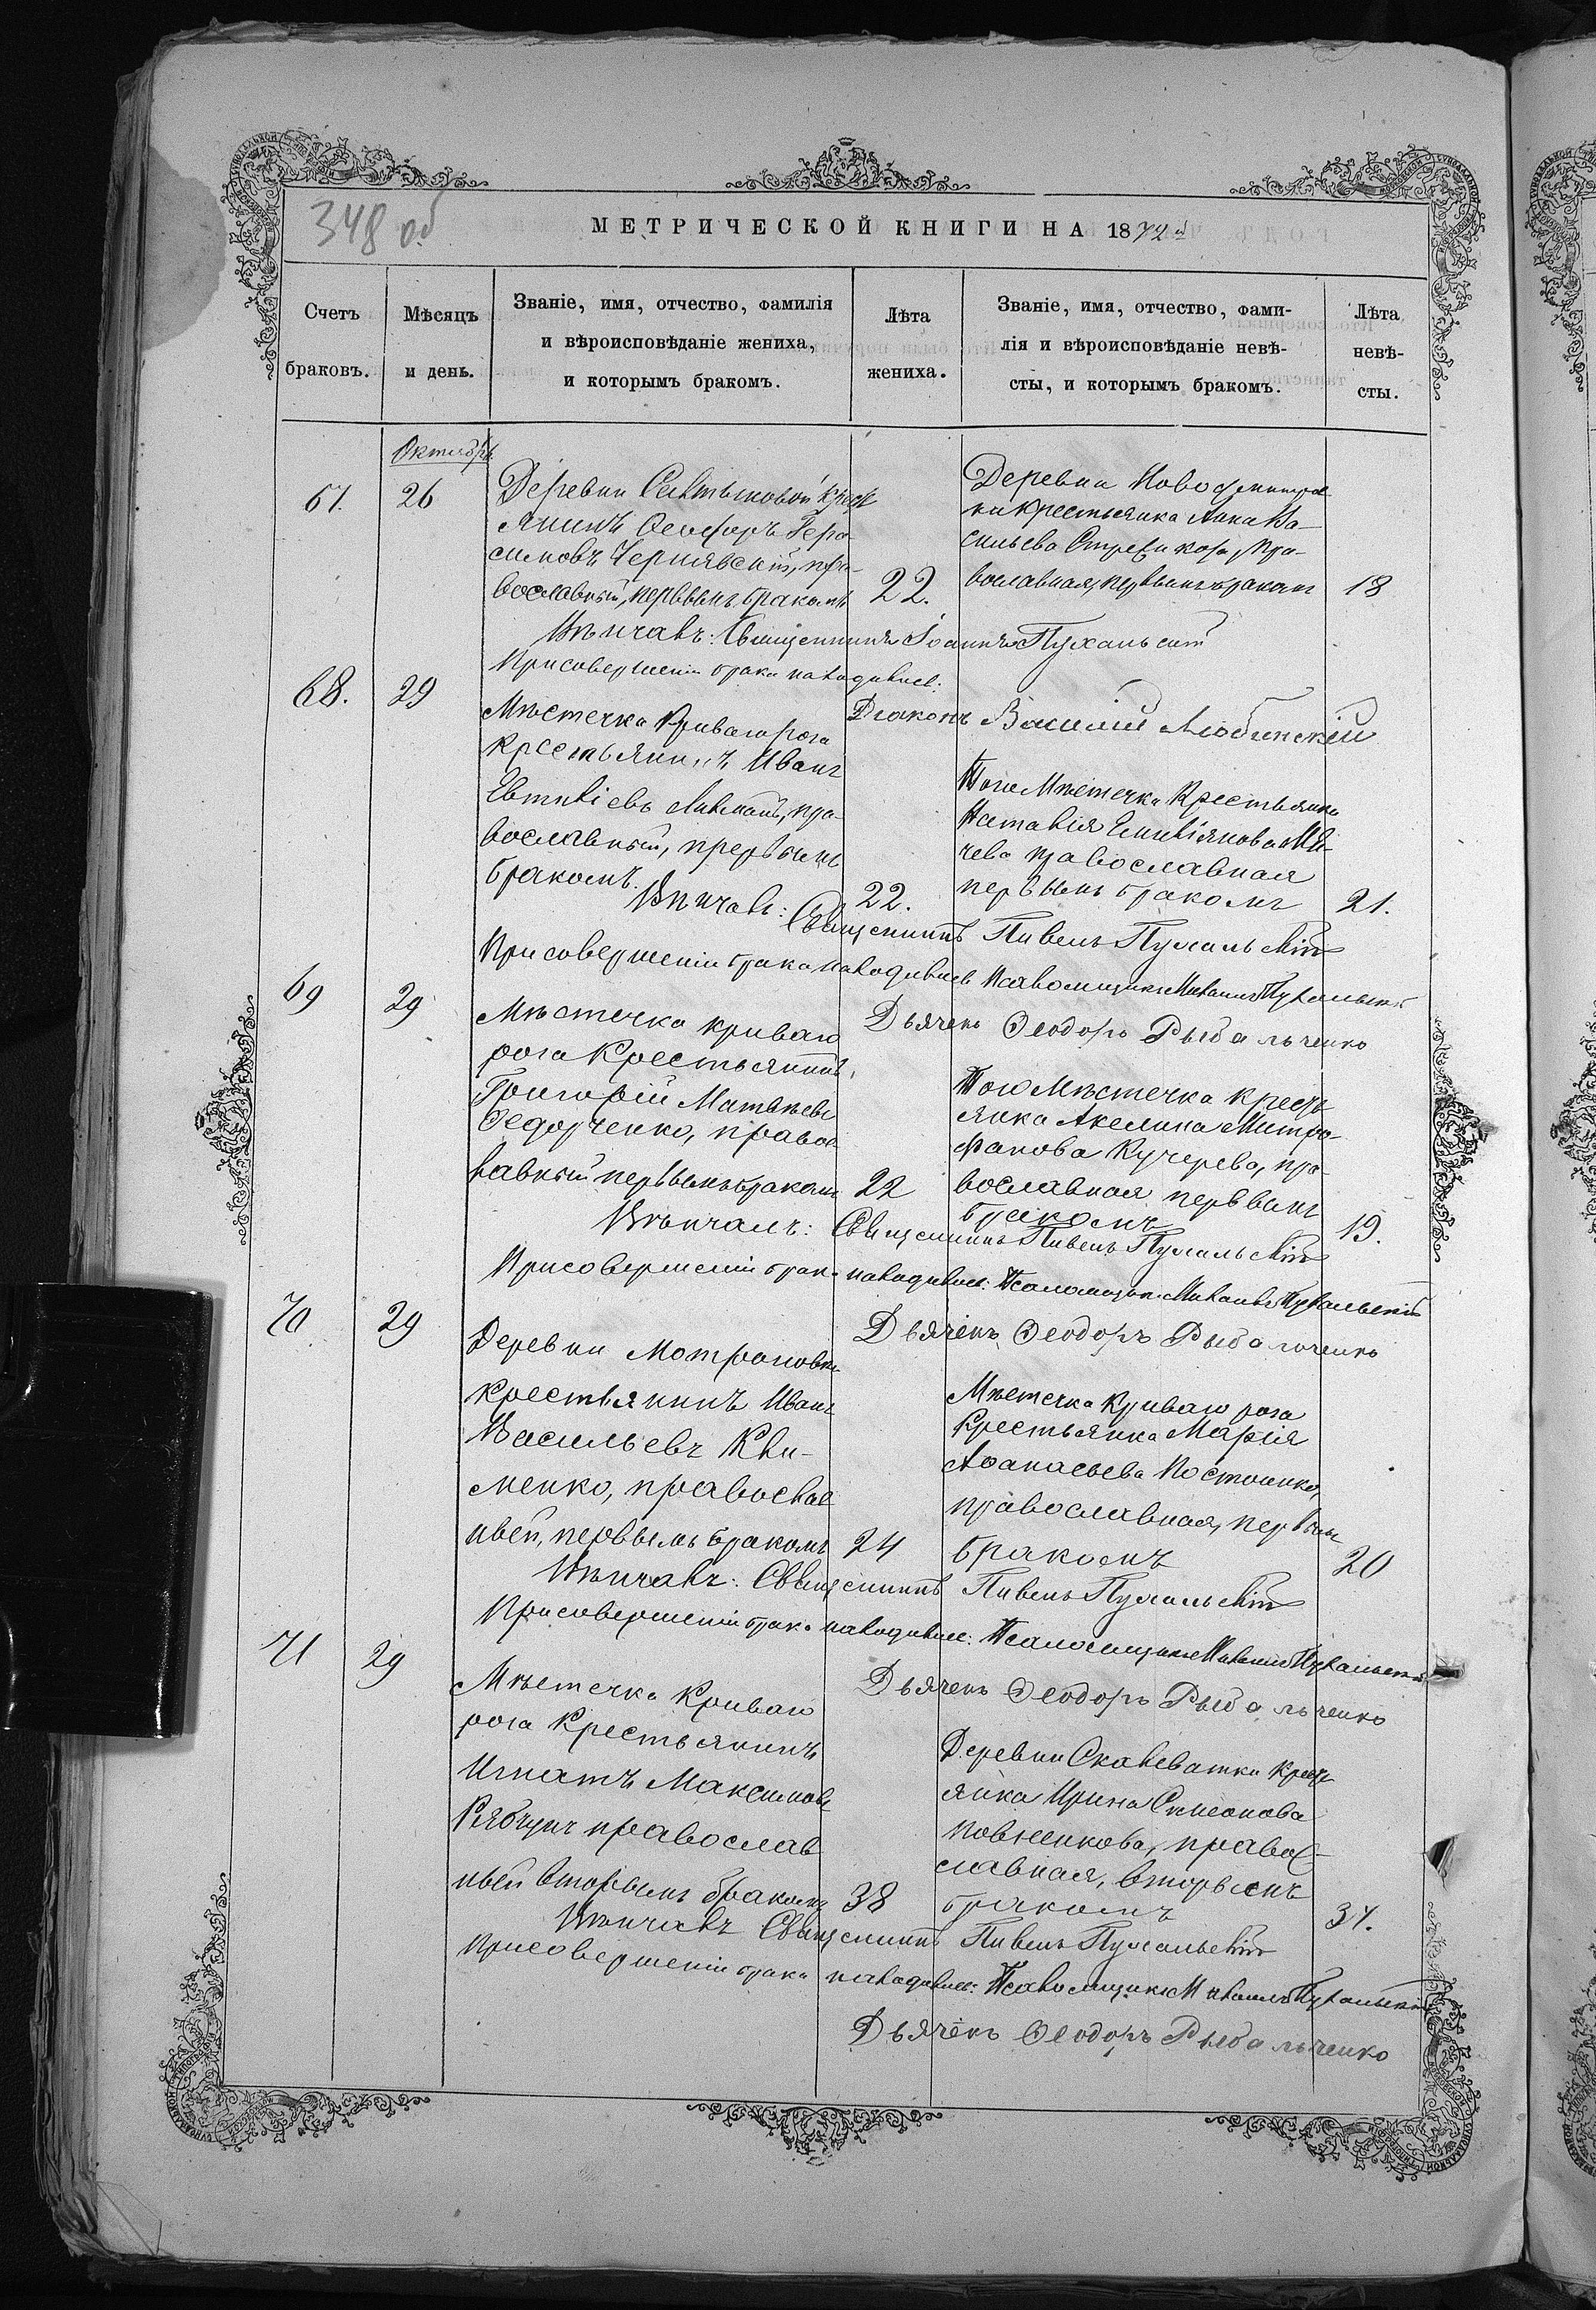 348 об
МЕТРИЧЕСКОЙ КНИГИ НА 1872й
Счетъ
браковъ.
Мѣсяцъ
и день.
Званіе, имя, отчество, фамилія
и вѣроисповѣданіе жениха,
и которымъ бракомъ.
Лѣта
жениха.
Званіе, имя, отчество, фами-
лія и вѣроисповѣданіе невѣ-
сты, и которымъ бракомъ.
Лѣта
невѣ-
сты.
Октябрь
67.
26
Деревни крест
янинъ Гера
симовъ Чернявскій, пра-
вославный, первымъ бракомъ
22.
Деревни
ки крестьянка Анна Ва-
сильева пра-
вославная, первымъ бракомъ
18
Вѣнчалъ: Священникъ Іоаннъ Пухальскій
При совершеніи брака находились:
Діаконъ Василій Любинскій
68.
29
Мѣстечка Криваго рога
крестьянинъ Иванъ
Евтихіевъ пра-
вославный, первымъ
бракомъ.
22.
Того Мѣстечка Крестьянка
Наталія
православная
первымъ бракомъ
21.
Вѣнчалъ: Священникъ Павелъ Пухальскій
При совершеніи брака находились Псаломщикъ Михаилъ Пухальскій
Дьячекъ Ѳеодоръ Рыбальченко
69
29
Мѣстечка Криваго
рога Крестьянинъ,
Григорій Матвѣевъ
Ѳедорченко, правос
лавный первымъ бракомъ
22
Того Мѣстечка крест
янка Акелина Митро-
фанова Кучерева, пра
вославная первымъ
бракомъ
19.
Вѣнчалъ: Священникъ Павелъ Пухальскій
При совершеніи брака находились: Псаломщикъ Михаилъ Пухальскій
Дьячекъ Ѳеодоръ Рыбальченко
70
29
Деревни Мотроновки
крестьянинъ Иванъ
Васильевъ Кли-
менко, православ
ный, первымъ бракомъ
24
Мѣстечка Криваго рога
Крестьянка Марія
Аѳанасьева
православная, первымъ
бракомъ
20
Вѣнчалъ: Священникъ Павелъ Пухальскій
При совершеніи брака находились: Псаломщикъ Михаилъ Пухальскій
Дьячекъ Ѳеодоръ Рыбальченко
71
29
Мѣстечка Криваго
рога Крестьянинъ
Игнатъ Максимовъ
Рябчунъ православ
ный вторымъ бракомъ
38
Деревни Скалеватки крест
янка Ирина Симеонова
правос-
лавная, вторымъ
бракомъ
37.
Вѣнчалъ Священникъ Павелъ Пухальскій
При совершеніи брака находились: Псаломщикъ Михаилъ Пухальскій
Дьячекъ Ѳеодоръ Рыбальченко